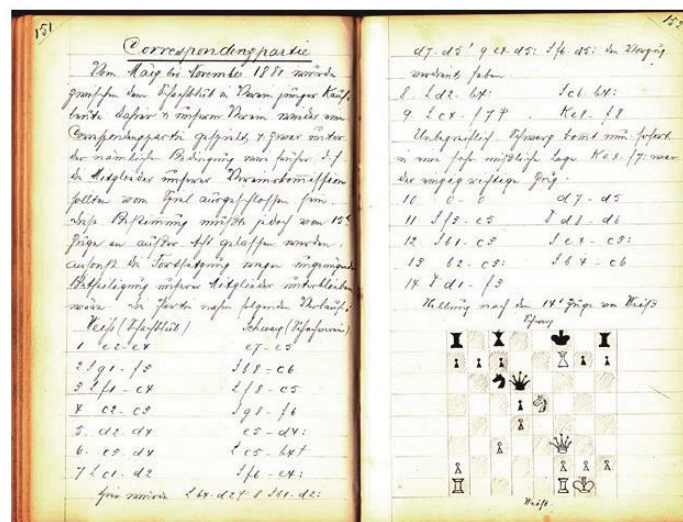 151
Correspondenzpartie
Vom März bis November 1881 wurde
zwischen dem Schachklub & Verein junger Kauf-
leute dahier & unserm Verein wieder eine
Correspondenzpartie gespielt & zwar unter
der nämlichen Bedingung wie früher d. h.
die Mitglieder unserer
sollten vom Spiel ausgeschlossen sein.
Diese Bestimmung mußte jedoch vom 15ten
Zuge an außer Acht gelassen werden,
ansonst die Fortsetzung wegen ungenügender
Betheiligung unserer Mitglieder unterblieben
wäre. Die Partie nahm folgenden Verlauf:
Weiß (Schachklub) Schwarz (Schachverein)
1 e2 - e4 e7 - e5
2 S g1 - f3 S b8 - c6
3 L f1 - c4 L f8 - c5
4 c2 - c3 S g8 - f6
5. d2 - d4 e5 - d4:
6. c3 - d4 L c5 - b4†
7 L c1 - d2 S f6 - e4:
Hier würde L b4 - d2† 8 S b1 - d2:
152
d7 - d5! 9 e4 - d5: S f6 - d5: den Vorzug
verdient haben.
8. L d2 - b4: S c6 - b4:
9 L c4 - f7† K e8 - f8
Unbegreiflich Schwarz kommt nun sofort
in eine sehr mißliche Lage K e8 - f7: war
der einzig richtige Zug.
10 0 - 0 d7 - d5
11 S f3 - e5 D d8 - d6
12 S b1 - c3 S e4 - c3:
13 b2 - c3: S b4 - c6
14 D d1 - f3
Stellung nach dem 14t Zuge von Weiß
Schwarz
Weiß.